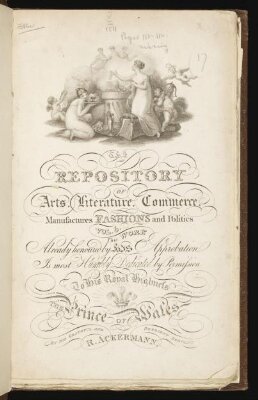 17
THE
REPOSITORY
OF
Arts, Literature, Commerce,
Manufactures, FASHIONS and Politics
VOL.
WORK
Already honoured by Approbation
Is most Humbly Dedicated by Permission
To His Royal Highness
The Prince of Wales
BY HIS
R. ACKERMANN.